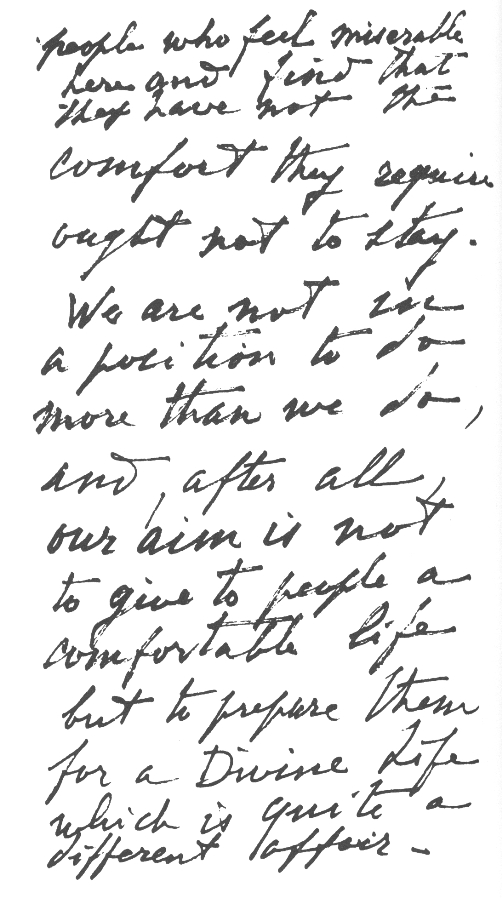 people who feel miserable
here and find that
they have not the
comfort they require
ought not to stay.
We are not in
a position to do
more than we do,
and, after all,
our aim is not
to give to people a
comfortable life
but to prepare them
for a Divine Life
which is quite a
different affair –